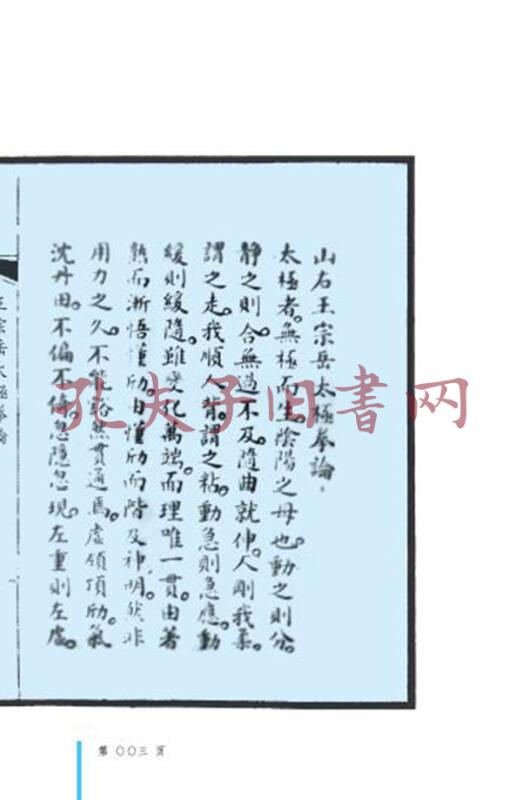 山右王宗岳太極拳論。
太極者。無極而生。陰陽之母也。動之則分。
靜之則合。無過不及。隨曲就伸。人剛我柔。
謂之走。我順人背。謂之粘。動急則急應。動
緩則緩隨。雖變化萬端。而理唯一貫。由著
熟而漸悟懂勁。由懂勁而階及神明。然非
用力之久。不能豁然貫通焉。虛領頂勁。氣
沈丹田。不偏不倚。忽隱忽現。左重則左虛。
王宗岳太極拳論
孔夫子旧书网
第 〇〇三 页